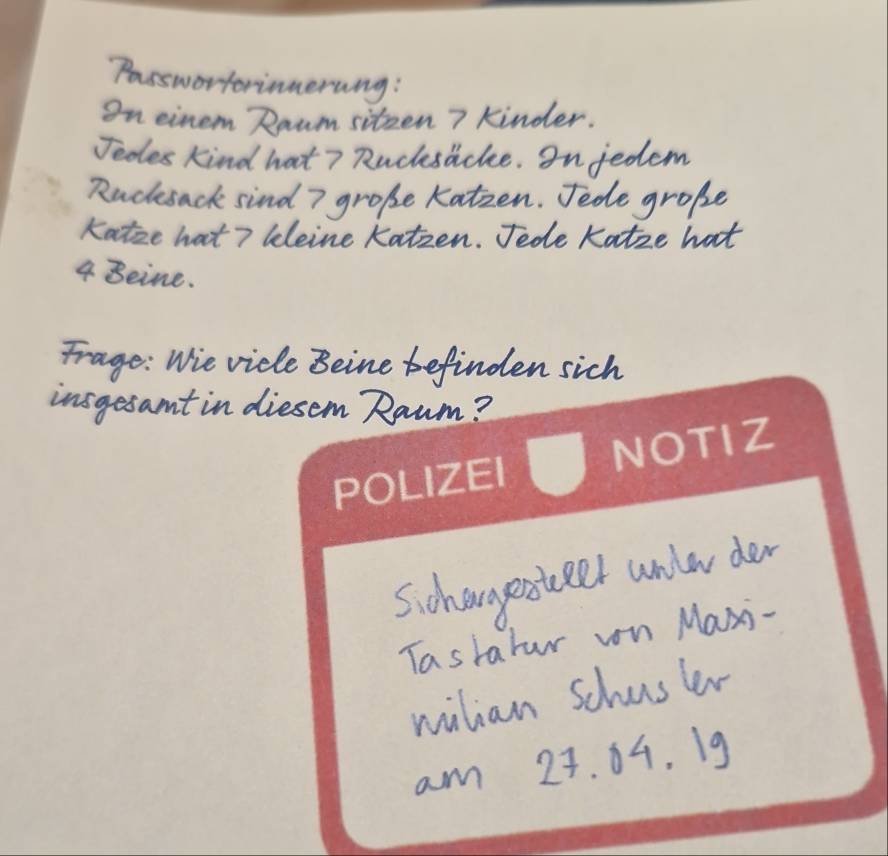 Passworterinnerung:
In einem Raum sitzen 7 Kinder.
Jedes Kind hat 7 Rucksäcke. In jedem
Rucksack sind 7 große Katzen. Jede große
Katze hat 7 kleine Katzen. Jede Katze hat
4 Beine.
Frage: Wie viele Beine befinden sich
insgesamt in diesem Raum?
POLIZEI NOTIZ
Sichergestellt unter der
Tastatur von Maxi-
milian Schusler
am 27.04.19